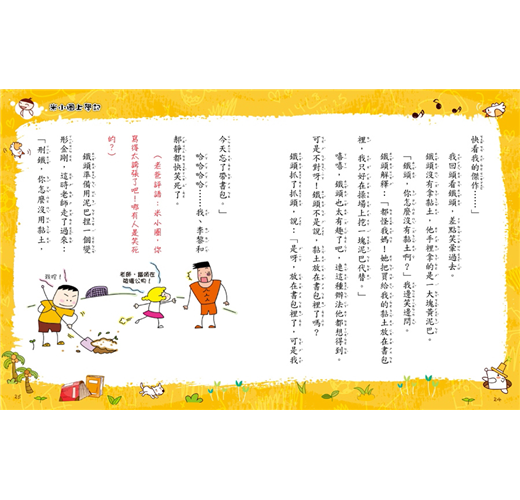 快看我的傑作……」
我回頭看鐵頭，差點笑暈過去。
鐵頭沒有拿黏土，他手裡拿的是一大塊黃泥巴。
「鐵頭，你怎麼沒有黏土啊？」我邊笑邊問。
鐵頭解釋：「都怪我媽！她把買給我的黏土放在書包
裡，我只好在操場上挖一塊泥巴代替。」
嘻嘻，鐵頭也太有趣了吧，連這種辦法他都想得到。
可是不對呀！鐵頭不是說，黏土放在書包裡了嗎？
鐵頭抓了抓頭，說：「是呀，放在書包裡了，可是我
24
米小圈上學記
今天忘了帶書包。」
哈哈哈哈……我、李黎和
郝靜都快笑死了。
（老爸評語：米小圈，你
寫得太誇張了吧！哪有人是笑死
的？）
鐵頭準備用泥巴捏一個變
形金剛，這時老師走了過來：
「刑鐵，你怎麼沒用黏土，
我挖！
老師，鐵頭在
挖壞公物！
25